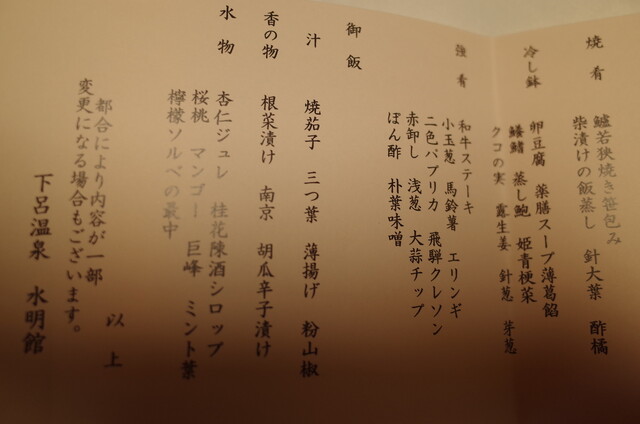 焼肴
鱸若狭焼き笹包み
柴漬けの飯蒸し 針大葉 酢橘
冷し鉢
卵豆腐 薬膳スープ薄葛餡
鱶鰭 蒸し鮑 姫青梗菜
クコの実 露生姜 針葱 芽葱
強肴
和牛ステーキ
小玉葱 馬鈴薯 エリンギ
二色パプリカ 飛騨クレソン
赤卸し 浅葱 大蒜チップ
ぽん酢 朴葉味噌
御飯
汁
焼茄子 三つ葉 薄揚げ 粉山椒
香の物
根菜漬け 南京 胡瓜辛子漬け
水物
杏仁ジュレ 桂花陳酒シロップ
桜桃 マンゴー 巨峰 ミント葉
檸檬ソルベの最中
以上
都合により内容が一部
変更になる場合もございます。
下呂温泉 水明館